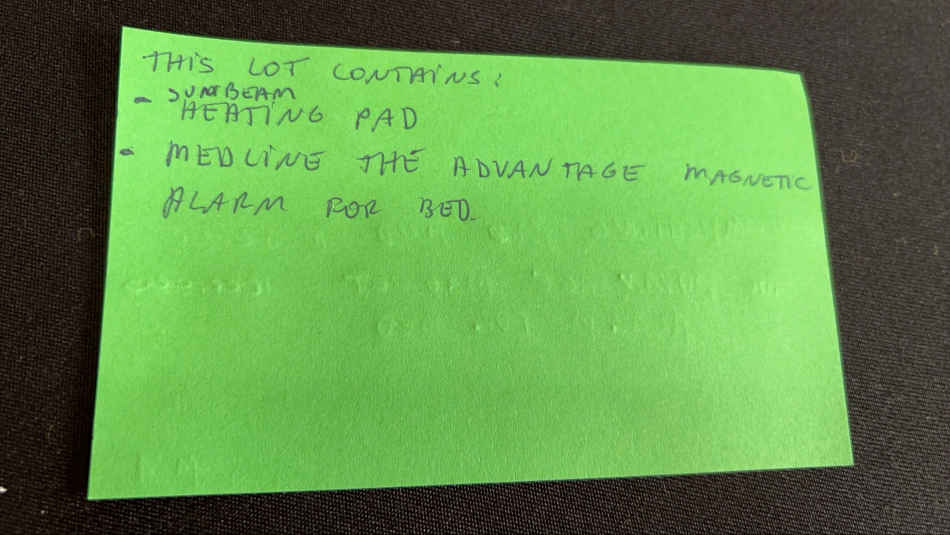 THIS LOT CONTAINS:
- SUNBEAM
HEATING PAD
- MEDLINE THE ADVANTAGE MAGNETIC
ALARM FOR BED.